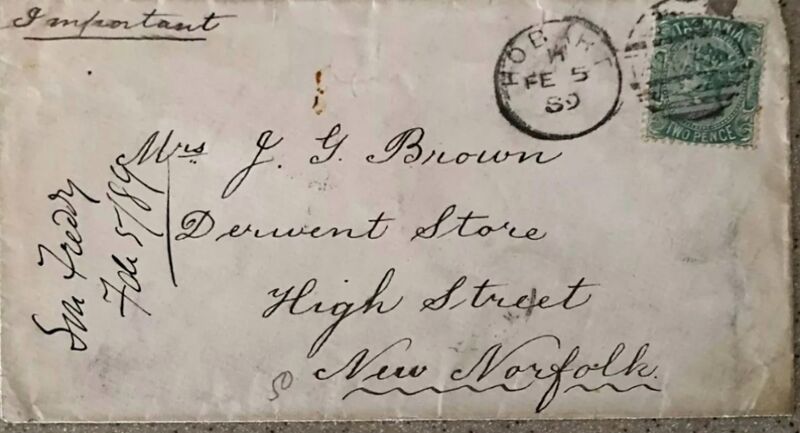 Important
HOBART
H
FE 5
89
TASMANIA
TWO PENCE
Mrs J. G. Brown
Derwent Store
High Street
New Norfolk.
Freddy
Feb 5/89